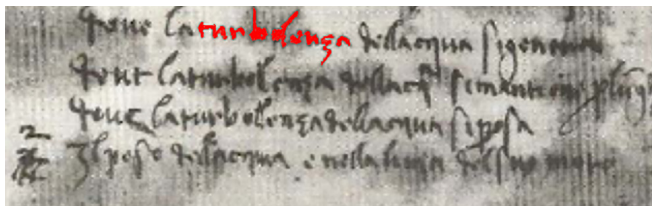 doue laturbolenza dellacqua sigenera
doue laturbolenza dellacq simantiene plu
doue laturbolenza dellacqua siposa
2
Il peso dellacqua e nella del suo moto